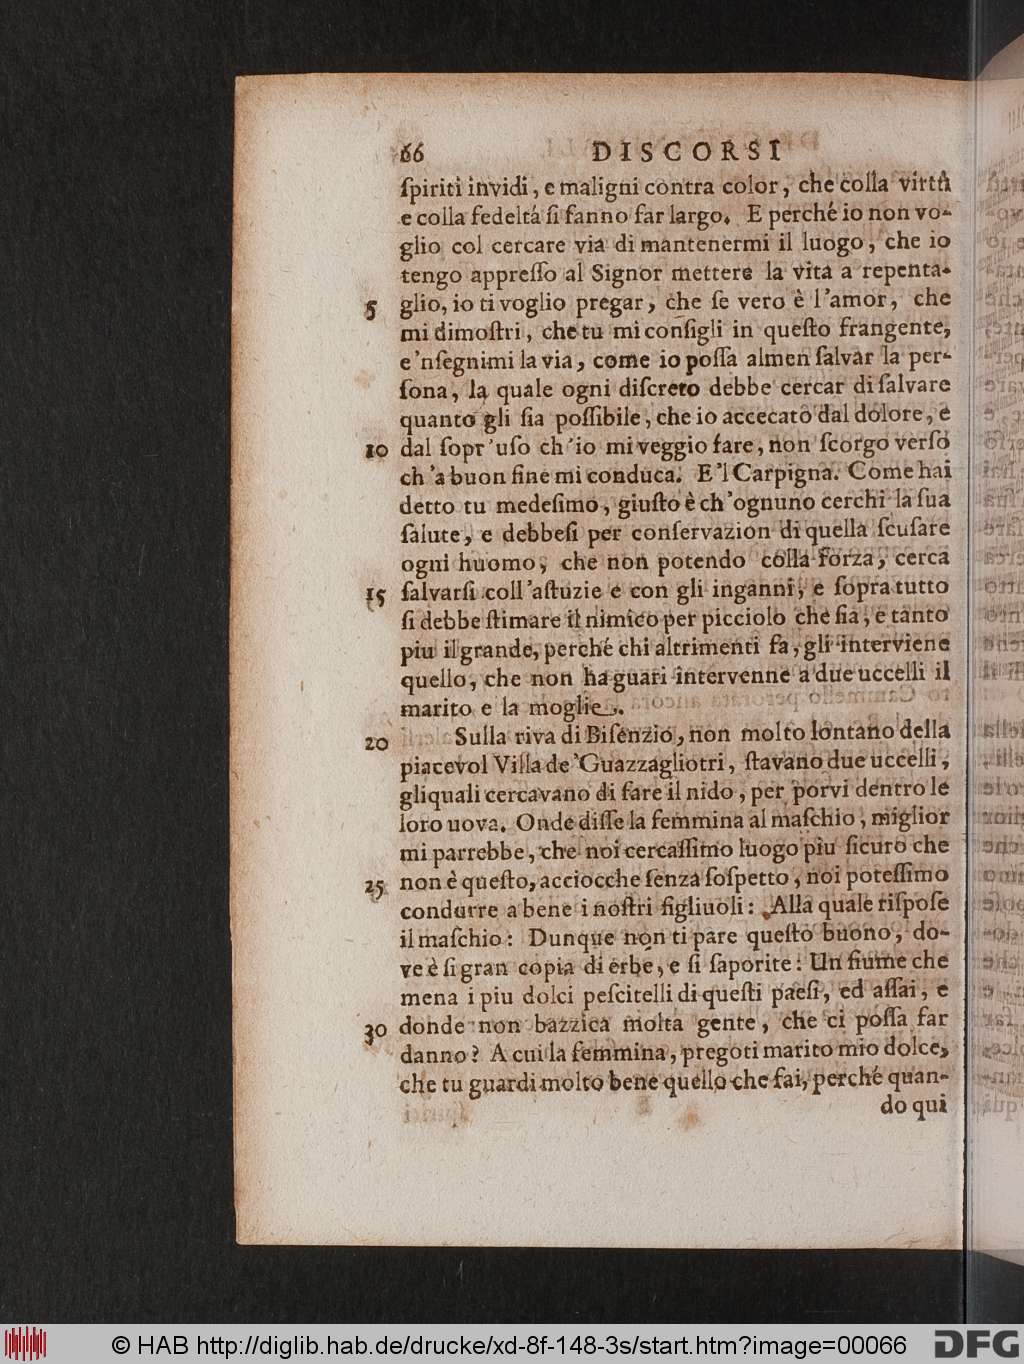 66 DISCORSI
ſpiriti invidi, e maligni contra color, che colla virtù
e colla fedeltá ſi fanno far largo. E perché io non vo-
glio col cercare via di mantenermi il luogo, che io
tengo appreſſo al Signor mettere la vita a repenta-
5 glio, io ti voglio pregar, che ſe vero è l'amor, che
mi dimoſtri, che tu mi conſigli in queſto frangente,
e 'nſegnimi la via, come io poſſa almen ſalvar la per-
ſona, la quale ogni diſcreto debbe cercar di ſalvare
quanto gli ſia poſſibile, che io accecato dal dolore, e
10 dal ſopr'uſo ch'io mi veggio fare, non ſcorgo verſo
ch'a buon fine mi conduca. E'l Carpigna. Come hai
detto tu medeſimo, giuſto è ch'ognuno cerchi la ſua
ſalute, e debbeſi per conſervazion di quella ſcuſare
ogni huomo, che non potendo colla forza, cerca
15 ſalvarſi coll'aſtuzie e con gli inganni, e ſopra tutto
ſi debbe ſtimare il nimico per picciolo che ſia, e tanto
piu il grande, perché chi altrimenti fa, gli interviene
quello, che non ha guari intervenne a due uccelli il
marito e la moglie.
20 Sulla riva di Biſenzio, non molto lontano della
piacevol Villa de'Guazzagliotri, ſtavano due uccelli,
gliquali cercavano di fare il nido, per porvi dentro le
loro uova. Onde diſſe la femmina al maſchio, miglior
mi parrebbe, che noi cercaſſimo luogo piu ſicuro che
25 non è queſto, acciocche ſenza ſoſpetto, noi poteſſimo
condurre a bene i noſtri figliuoli: Alla quale riſpoſe
il maſchio: Dunque non ti pare queſto buono, do-
ve è ſi gran copia di erbe, e ſi ſaporite: Un fiume che
mena i piu dolci peſcitelli di queſti paeſi, ed aſſai, e
30 donde non bazzica molta gente, che ci poſſa far
danno? A cui la femmina, pregoti marito mio dolce,
che tu guardi molto bene quello che fai, perché quan-
do qui
© HAB http://diglib.hab.de/drucke/xd-8f-148-3s/start.htm?image=00066
DFG